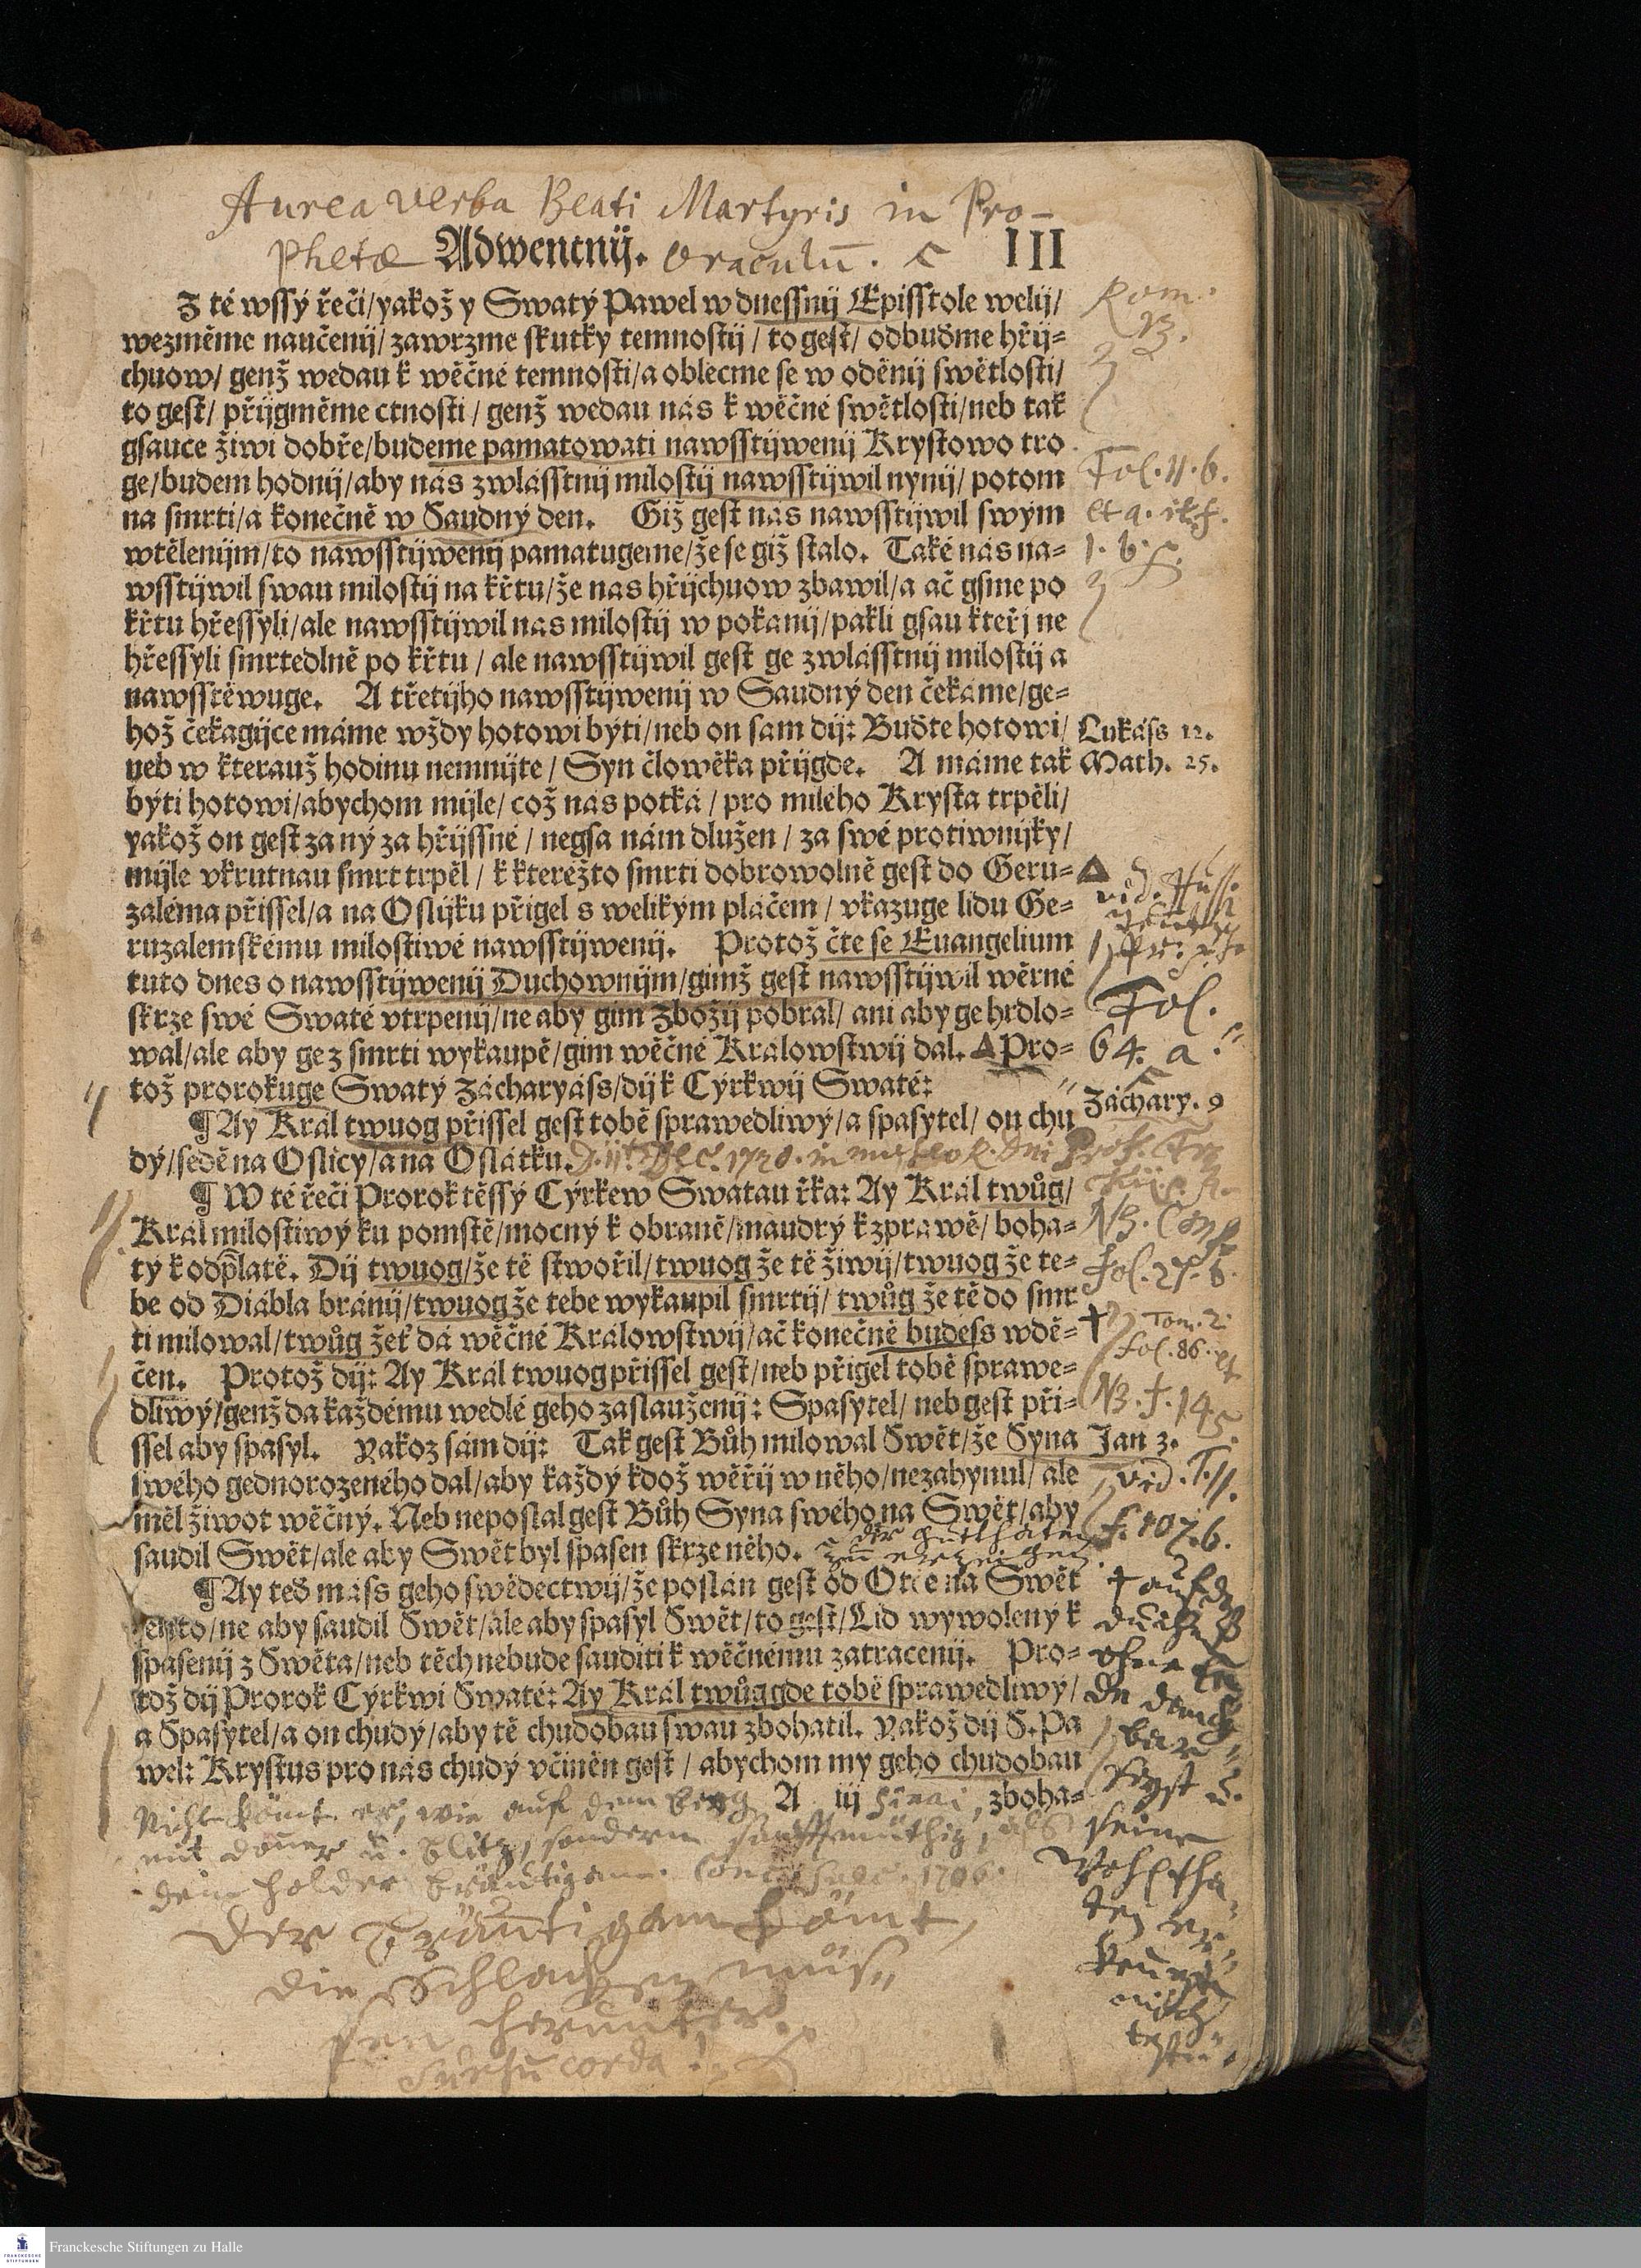 Aurea verba Beati Martyris in Pro-
phetæ Adwentnij. Oraculū. III
Z té wssý řeči/yakož y Swatý Pawel w dnessnij Episstole welij/
Rom.
13.
wezměme naučenij/ zawrzme skutky temnostij / to gest/ odbuďme hřij-
chuow/ genž wedau k wěčné temnosti/a oblecme se w oděnij swětlosti/
to gest/ přijgměme ctnosti / genž wedau nás k wěčné swětlosti/neb tak
gsauce žiwi dobře/budeme pamatowati nawsstijwenij Krystowo tro
ge/budem hodnij/aby nás zwlásstnij milostij nawsstijwil nynij/ potom
Fol. 11. b.
na smrti/a konečně w Saudný den. Giž gest nás nawsstijwil swým
wtělenijm/to nawsstijwenij pamatugeme/že se giž stalo. Také nás na-
1. b.
wsstijwil swau milostij na křtu/že nas hřijchuow zbawil/a ač gsme po
křtu hřessyli/ale nawsstijwil nas milostij w pokanij/pakli gsau kteřj ne
hřessyli smrtedlně po křtu / ale nawsstijwil gest ge zwlásstnij milostij a
nawsstěwuge. A třetijho nawsstijwenij w Saudný den čekáme/ge-
hož čekagijce máme wždy hotowi býti/neb on sam dij: Buďte hotowi/
Lukáss 12.
neb w kterauž hodinu nemnijte / Syn člowěka přijgde. A máme tak
Math. 25.
býti hotowi/abychom mijle/ což nás potká / pro milého Krysta trpěli/
yakož on gest za ný za hřijssné / negsa nám dlužen / za swé protiwnijky/
mijle vkrutnau smrt trpěl / k kteréžto smrti dobrowolně gest do Geru-
zaléma přissel/a na Oslijku přigel s welikým pláčem / vkazuge lidu Ge-
vid. Huss.
ruzalemskému milostiwé nawsstijwenij. Protož čte se Euangelium
tuto dnes o nawsstijwenij Duchownijm/gimž gest nawsstijwil wěrné
skrze swé Swaté vtrpenij/ne aby gim Zbožij pobral/ ani aby ge hrdlo-
Fol.
wal/ale aby ge z smrti wykaupě/gim wěčné Králowstwij dal. Pro-
64. a
tož prorokuge Swatý Zácharyáss/dij k Cýrkwij Swaté:
Záchary. 9
¶ Ay Král twuog přissel gest tobě sprawedliwý/a spasytel/ on chu
dý/sedě na Oslicy/a na Oslátku.
¶ W té řeči Prorok těssý Cýrkew Swatau řka: Ay Král twůg/
Král milostiwý ku pomstě/mocný k obraně/maudrý k zprawě/ boha-
NB.
tý k odplatě. Dij twuog/že tě stwořil/twuog že tě žiwij/twuog že te-
fol. 27. b.
be od Diábla bránij/twuog že tebe wykaupil smrtij/ twůg že tě do smr
Tom. 2.
ti milowal/twůg žeť dá wěčné Králowstwij/ač konečně budess wdě-
fol. 86. et
čen. Protož dij: Ay Král twuog přissel gest/neb přigel tobě sprawe-
NB. f. 14
dliwý/genž da každému wedlé geho zaslauženij: Spasytel/ neb gest při-
ssel aby spasyl. Yakoz sám dij: Tak gest Bůh milowal Swět/že Syna
Jan 3.
swého gednorozeného dal/aby každý kdož wěřij w něho/nezahynul/ ale
vid. T. II.
měl žiwot wěčný. Neb neposlal gest Bůh Syna swého na Swět/aby
f. 107. b.
saudil Swět/ale aby Swět byl spasen skrze něho.
¶ Ay teď máss geho swědectwij/že poslán gest od Otce na Swět
tento/ne aby saudil Swět/ále aby spasyl Swět/to gest/Lid wywolený k
spasenij z Swěta/neb těch nebude sauditi k wěčnému zatracenij. Pro-
tož dij Prorok Cýrkwi Swaté: Ay Král twůg gde tobě sprawedliwý/
a Spasytel/a on chudý/aby tě chudobau swau zbohatil. Yakož dij S. Pa
wel: Krystus pro nás chudý včiněn gest / abychom my geho chudobau
A iij zboha-
Nicht kömt er, wie auf dem berg Sinai,
mit donner u. blitz, sondern sanfftmüthig, als
dein holder bräutigam. 1706.
seine
Wohltha-
ten er-
kennen
Der Bräutigam kömt,
die Schlachten müs-
sen herunter.
Sursū corda!